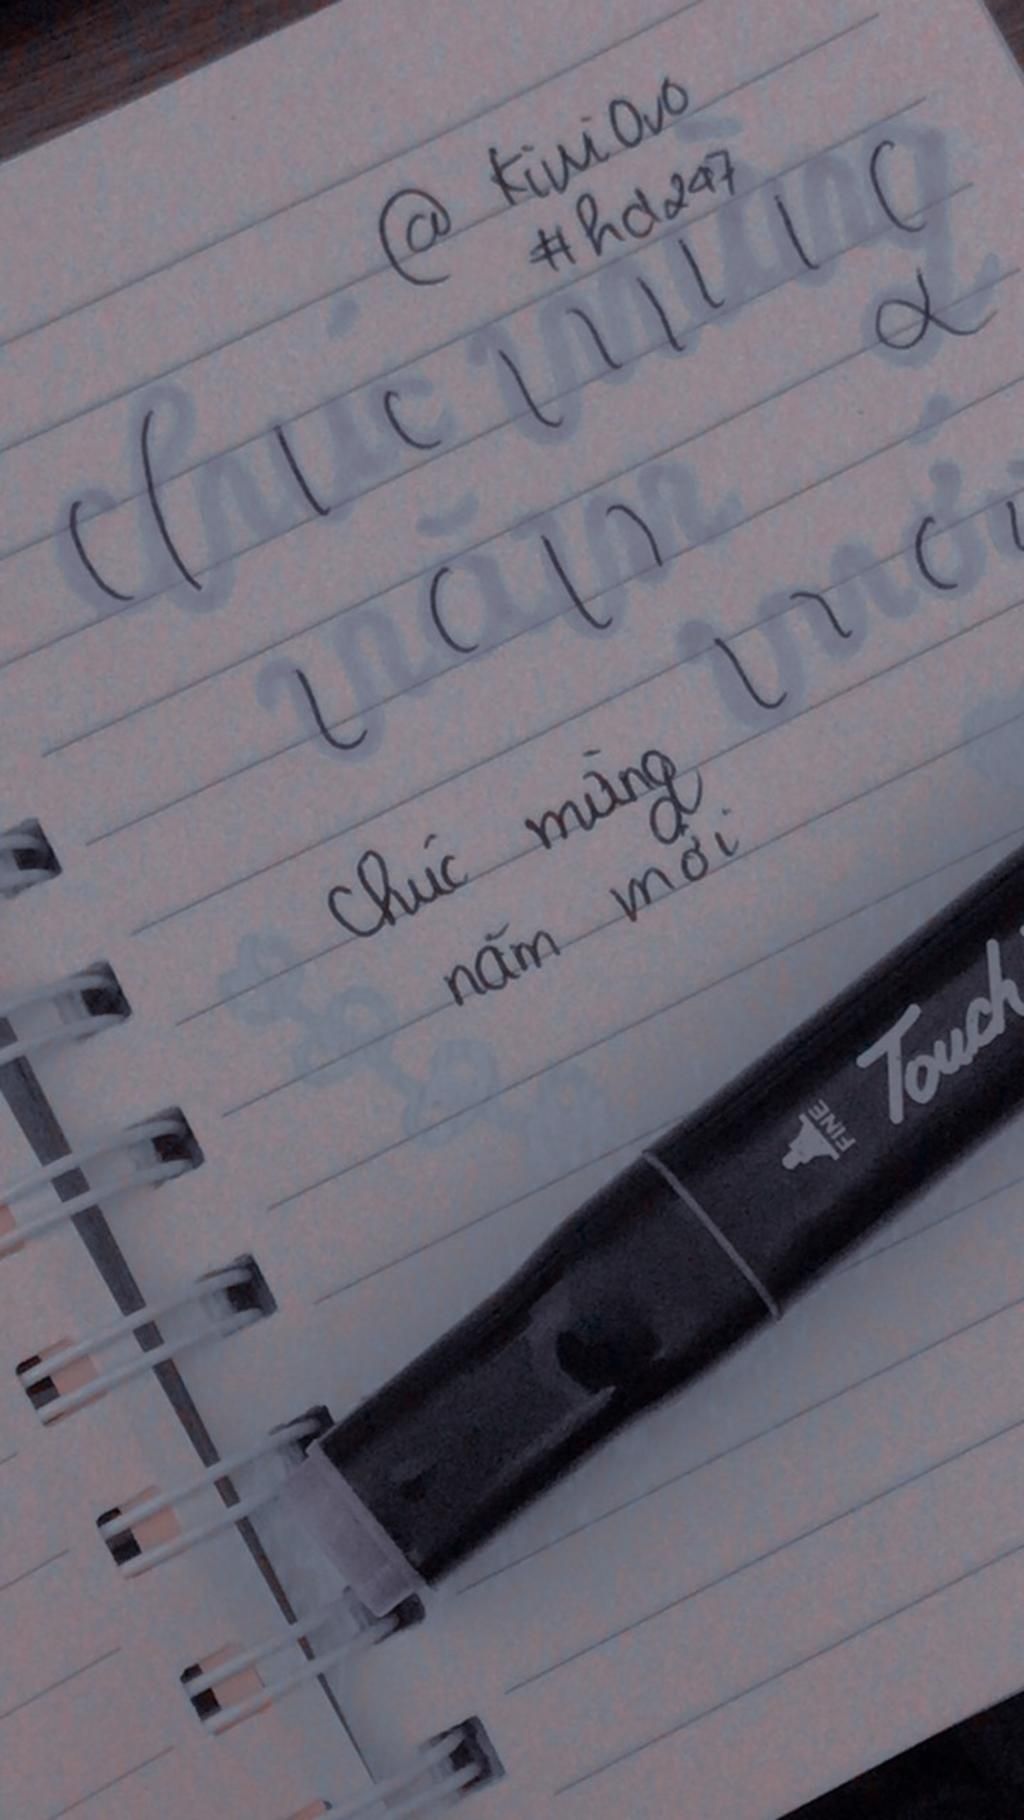 @ kiwi0v0
#hd247
chúc mừng
năm mới
chúc mừng
năm mới
Touch
FINE